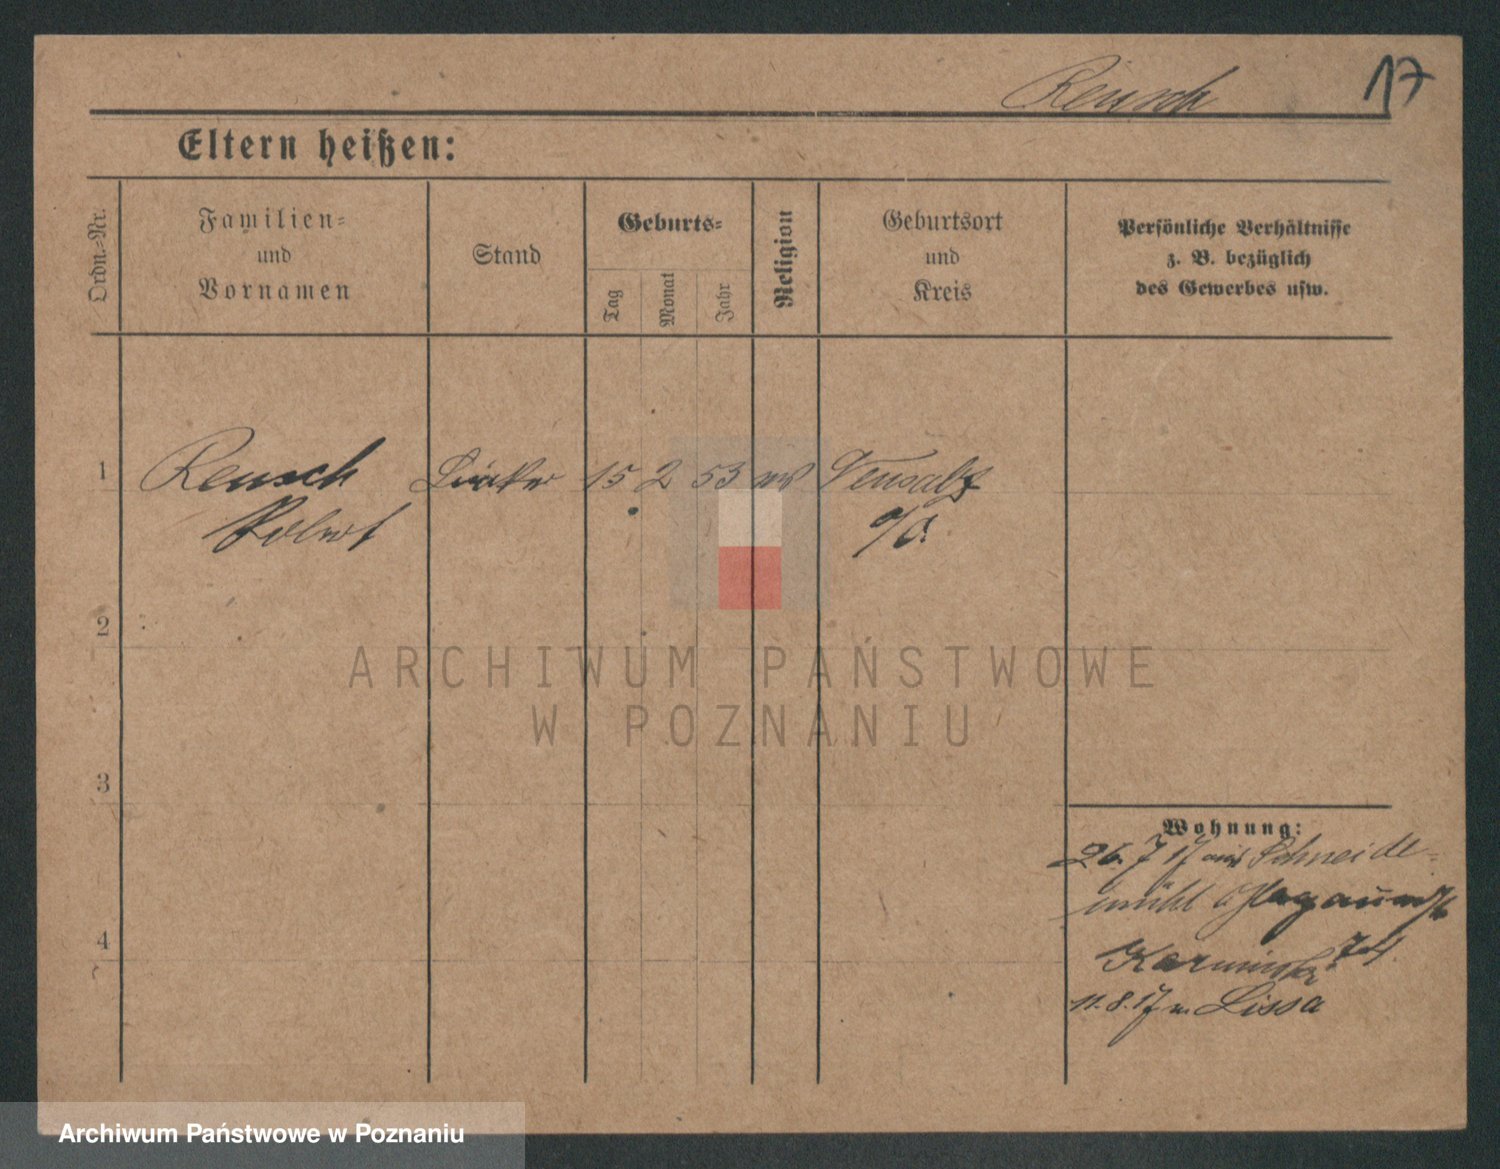 Reusch
17
Eltern heißen:
Ordn.-Nr.
Familien-
und
Vornamen
Stand
Geburts-
Tag
Monat
Jahr
Religion
Geburtsort
und
Kreis
Persönliche Verhältnisse
z. B. bezüglich
des Gewerbes usw.
1 Reusch 15 2 53 Neusalz
Robert a/O.
2
ARCHIWUM PAŃSTWOWE
W POZNANIU
3
Wohnung:
26. 7 17 aus Schneide-
mühl
4
11. 8. 17 n. Lissa
Archiwum Państwowe w Poznaniu